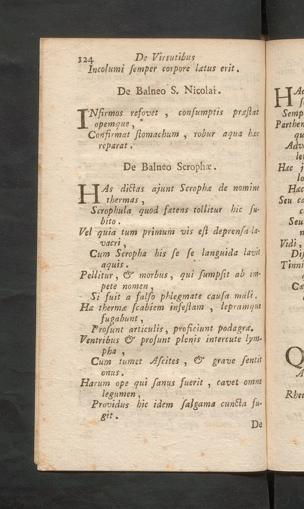 324 De Virtutibus
Incolumi ſemper corpore lætus erit.
De Balneo S. Nicolai.
INfirmos refovet, conſumptis præſtat
opemque,
Confirmat ſtomachum, robur aqua hæc
reparat.
De Balneo Scrophæ.
HAs dictas ajunt Scropha de nomine
thermas,
Scrophula quod fætens tollitur hic ſu-
bito.
Vel quia tum primum vis eſt deprenſa la-
vacri,
Cum Scropha his ſe ſe languida lavit
aquis.
Pellitur, & morbus, qui ſumpſit ab im-
pete nomen,
Si fuit a falſo phlegmate cauſa mali.
Hæ thermæ ſcabiem infeſtam, lepramque
fugabunt,
Proſunt articulis, proficiunt podagræ.
Ventribus & proſunt plenis intercute lym-
pha,
Cum tumet Aſcites, & grave ſentit
onus.
Harum ope qui ſanus fuerit, cavet omne
legumen,
Providus hic idem ſalgama cuncta fu-
git.
De